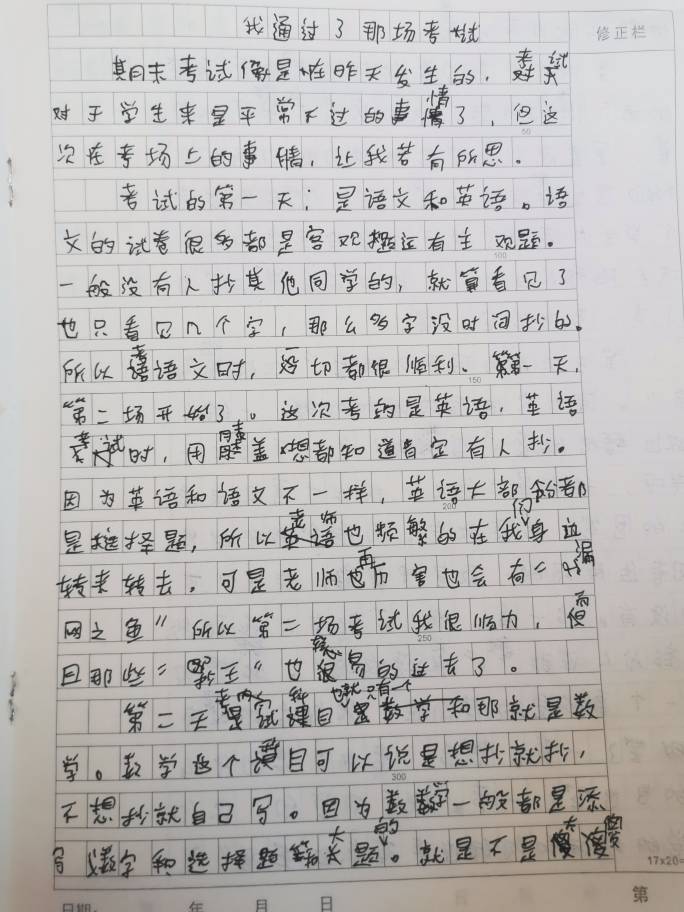 我通过了那场考试
修正栏
期末考试像是在昨天发生的，考试
对于学生来是平常不过的事情了，但这
50
次在考场上的事情，让我若有所思。
考试的第一天；是语文和英语。语
文的试卷很多都是客观题还有主观题。
100
一般没有人抄其他同学的，就算看见了
也只看见几个字，那么多字没时间抄的。
所以考语文时，一切都很顺利。第一天，
150
第二场开始了。这次考的是英语，英语
考试时，用膝盖想都知道肯定有人抄。
因为英语和语文不一样，英语大部分都
200
是选择题，所以老师也频繁的在我们身边
转来转去，可是老师再厉害也会有“漏
网之鱼”所以第二场考试我很顺利，而
250
且那些“ 王”也很易的过去了。
第二天考两个科目也就只有一个那就是数
学。数学这个科目可以说是想抄就抄，
300
不想抄就自己写。因为数学一般都是添
写数字和选择题等大的题。就是不是大傻傻
17x20=
日期： 年 月 日
第